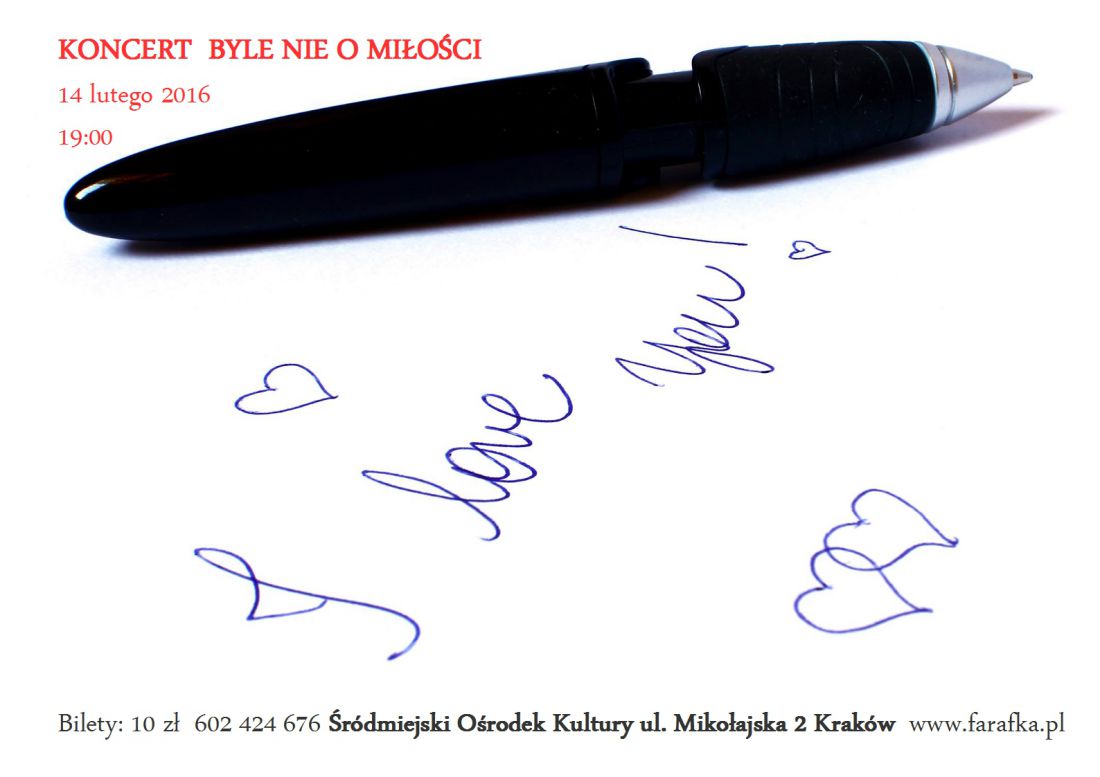 KONCERT BYLE NIE O MIŁOŚCI
14 lutego 2016
19:00
I love you!
Bilety: 10 zł 602 424 676 Śródmiejski Ośrodek Kultury ul. Mikołajska 2 Kraków www.farafka.pl